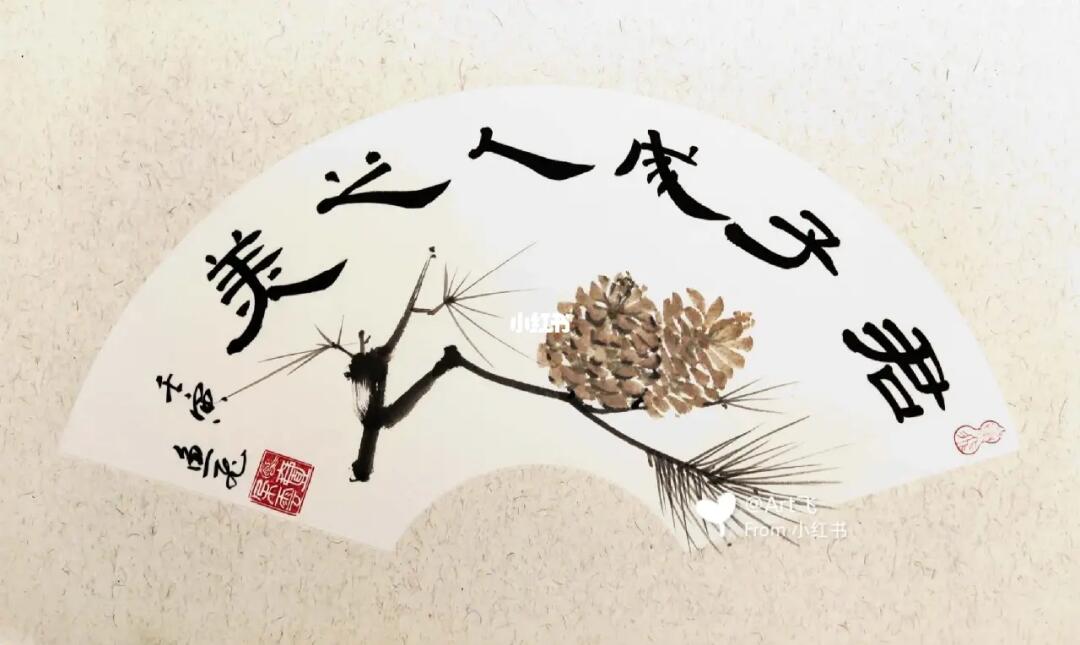 君子成人之美
壬寅
小红书
@Art飞
From 小红书